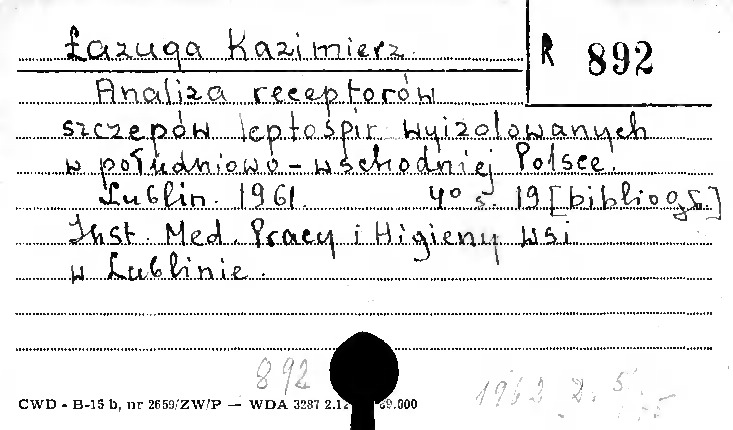 Łazuga Kazimierz
R 892
Analiza receptorów
szczepów leptospir wyizolowanych
w południowo-wschodniej Polsce.
Lublin. 1961. 4° s. 19 [bibliogr.]
Inst. Med. Pracy i Higieny Wsi
w Lublinie.
892
1962 2. 5
CWD - B-15 b, nr 2659/ZW/P — WDA 3287 2.12 69.000